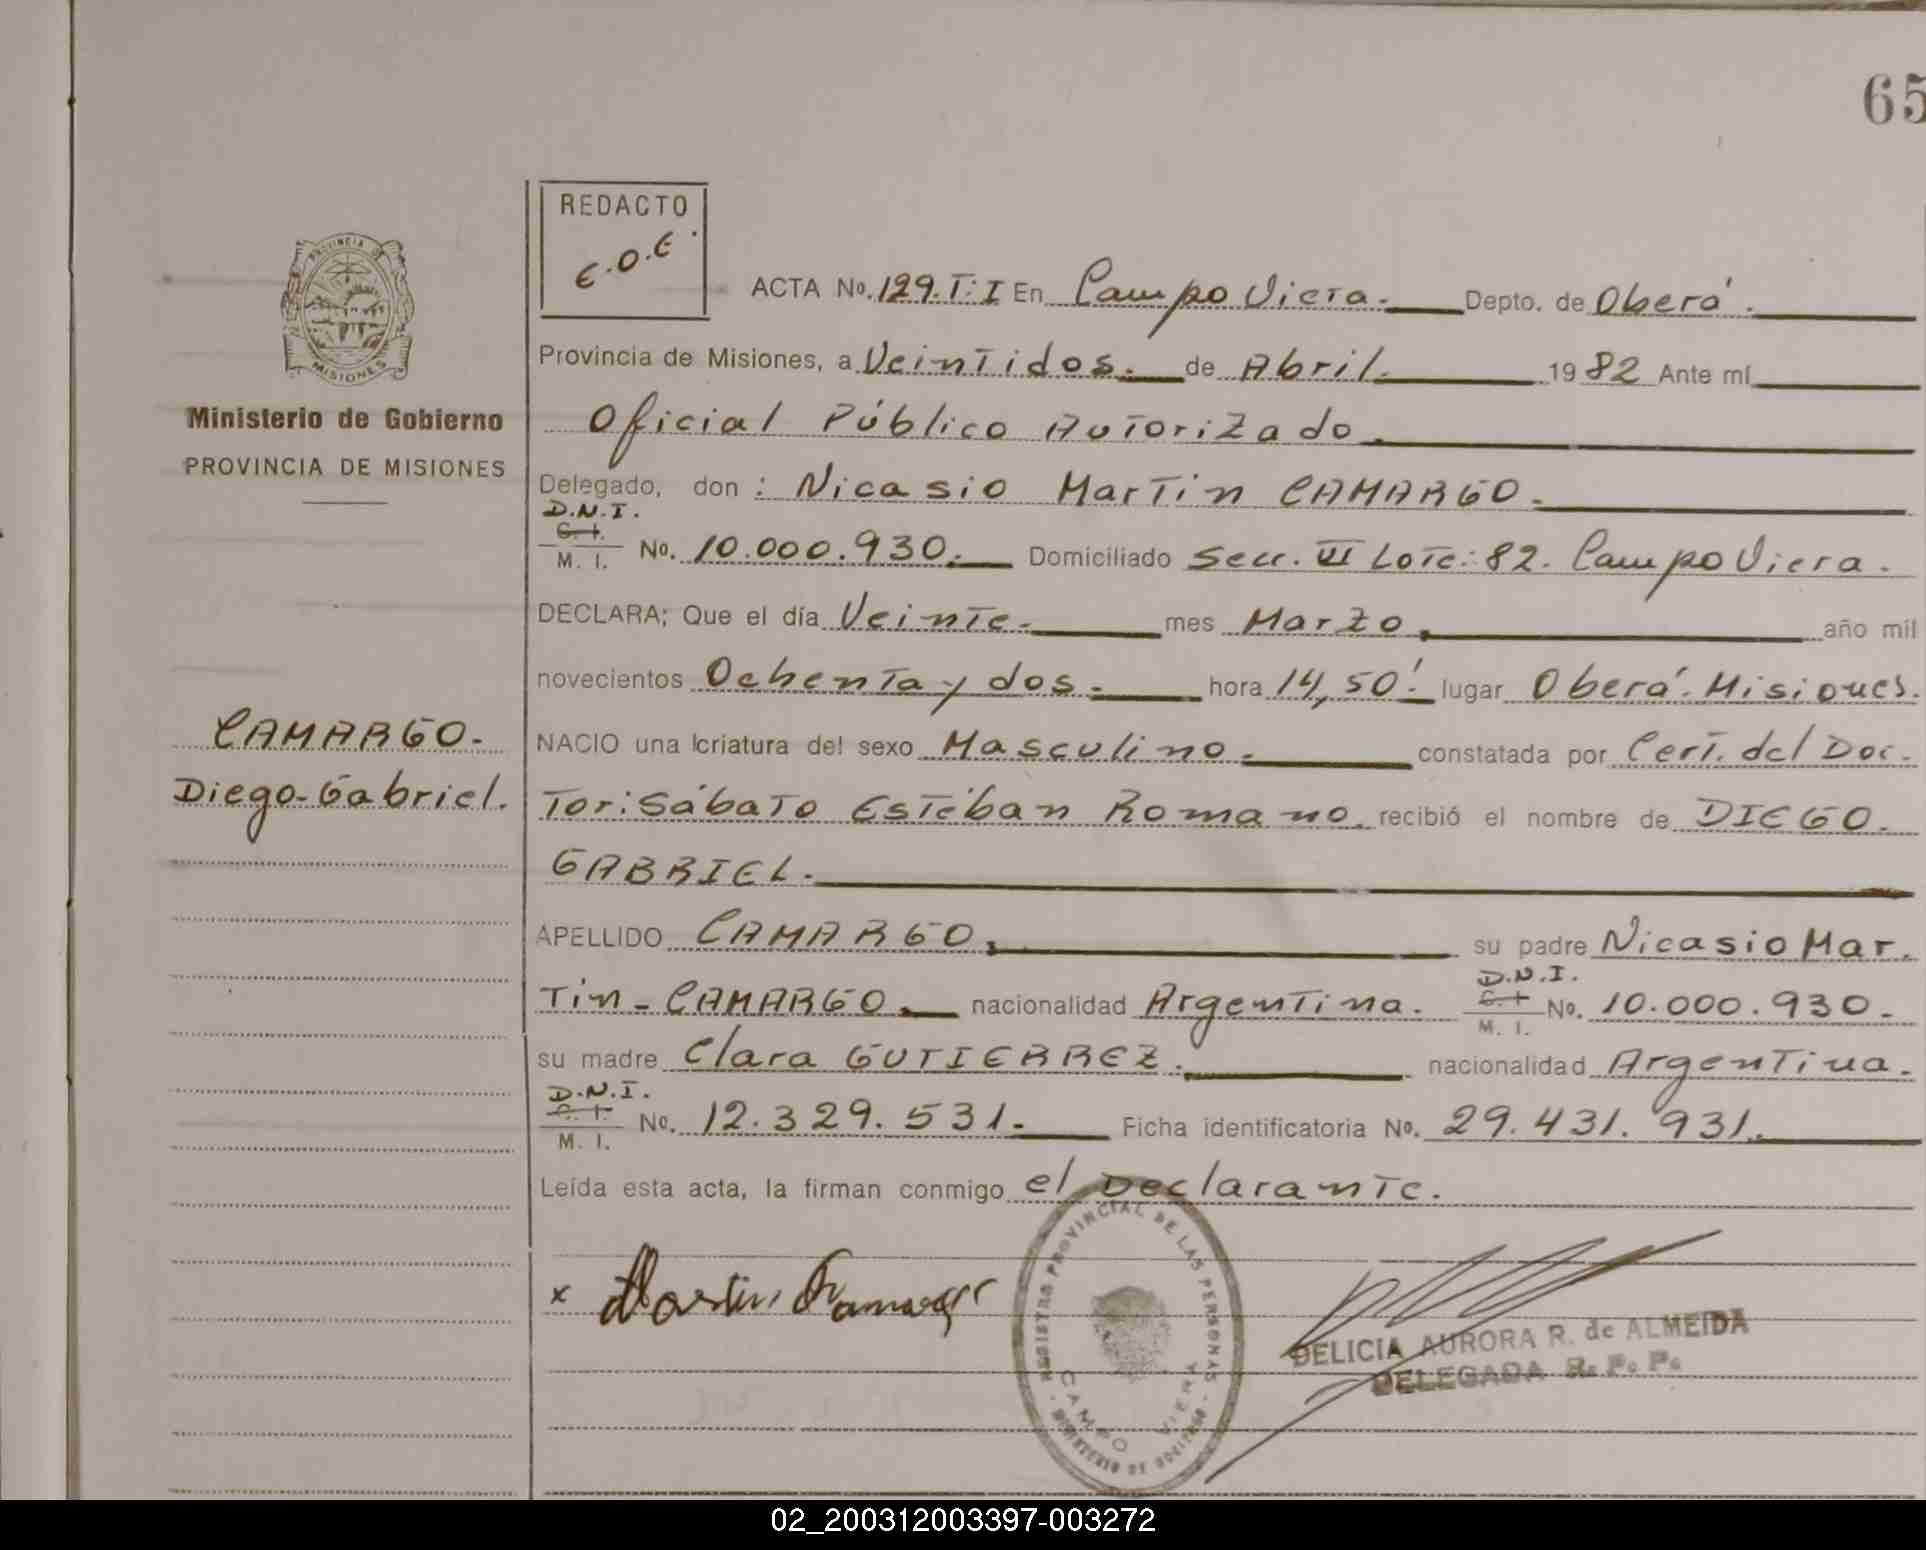 65
REDACTO
E.O.E.
PROVINCIA DE
MISIONES
ACTA No. 129.T:I En Campo Viera. Depto. de Oberá.
Provincia de Misiones, a Veintidos. de Abril. 1982 Ante mí
Ministerio de Gobierno
Oficial Público Autorizado.
PROVINCIA DE MISIONES
Delegado, don : Nicasio Martin CAMARGO.
D.N.I.
C. I.
M. I. No. 10.000.930. Domiciliado Secc. VI Lote: 82. Campo Viera.
DECLARA; Que el día Veinte. mes Marzo. año mil
novecientos Ochenta y dos. hora 14,50'. lugar Oberá. Misiones.
CAMARGO.
NACIO una criatura del sexo Masculino. constatada por Cert. del Doc-
Diego-Gabriel.
tor: Sábato Estéban Romano. recibió el nombre de DIEGO.
GABRIEL.
APELLIDO CAMARGO. su padre Nicasio Mar.
D.N.I.
tin - CAMARGO. nacionalidad Argentina. C. I. No. 10.000.930.
M. I.
su madre Clara GUTIERREZ. nacionalidad Argentina.
D.N.I.
C. I.
M. I. No. 12.329.531. Ficha identificatoria No. 29.431.931.
Leída esta acta, la firman conmigo el Declarante.
x Martin Camargo
REGISTRO PROVINCIAL DE LAS PERSONAS
CAMPO VIERA
MINISTERIO DE GOBIERNO
DELICIA AURORA R. de ALMEIDA
DELEGADA R. P. P.
02_200312003397-003272